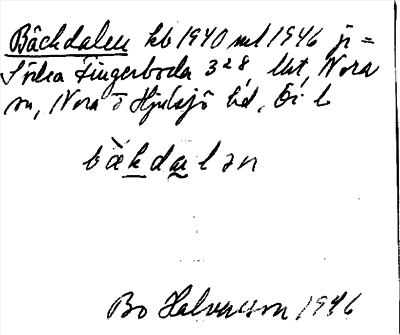 Bäckdalen kb 1940 ml 1946 ji =
Södra Fingerboda 3²⁸, lht, Nora
sn, Nora o Hjulsjö hd, Ör l
bä̀kdalən
Bo Halvarson 1946